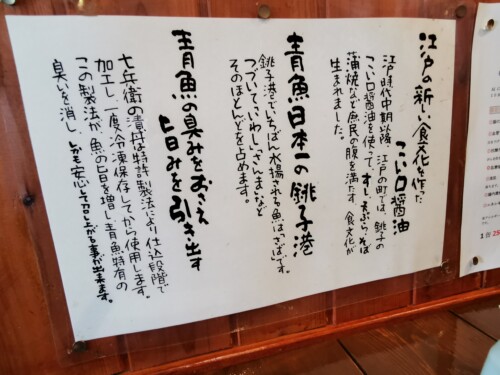 江戸の新しい食文化を作った
こい口醤油
江戸時代中期以降、江戸の町では、銚子の
こい口醤油を使って、すし、天ぷら、そば
蒲焼など庶民の腹を満たす食文化が
生まれました。
青魚日本一の銚子港
銚子港でいちばん水揚される魚は、さばです。
つづいて、いわし、さんまなど
そのほとんどを占めます。
青魚の臭みをおさえ
旨みを引き出す
七兵衛の清丹は特許製法により仕込段階で
加工し、一度冷凍保存してから使用します。
この製法が、魚の旨を増し青魚特有の
臭いを消し、しかも安心して召し上がる事が出来ます。